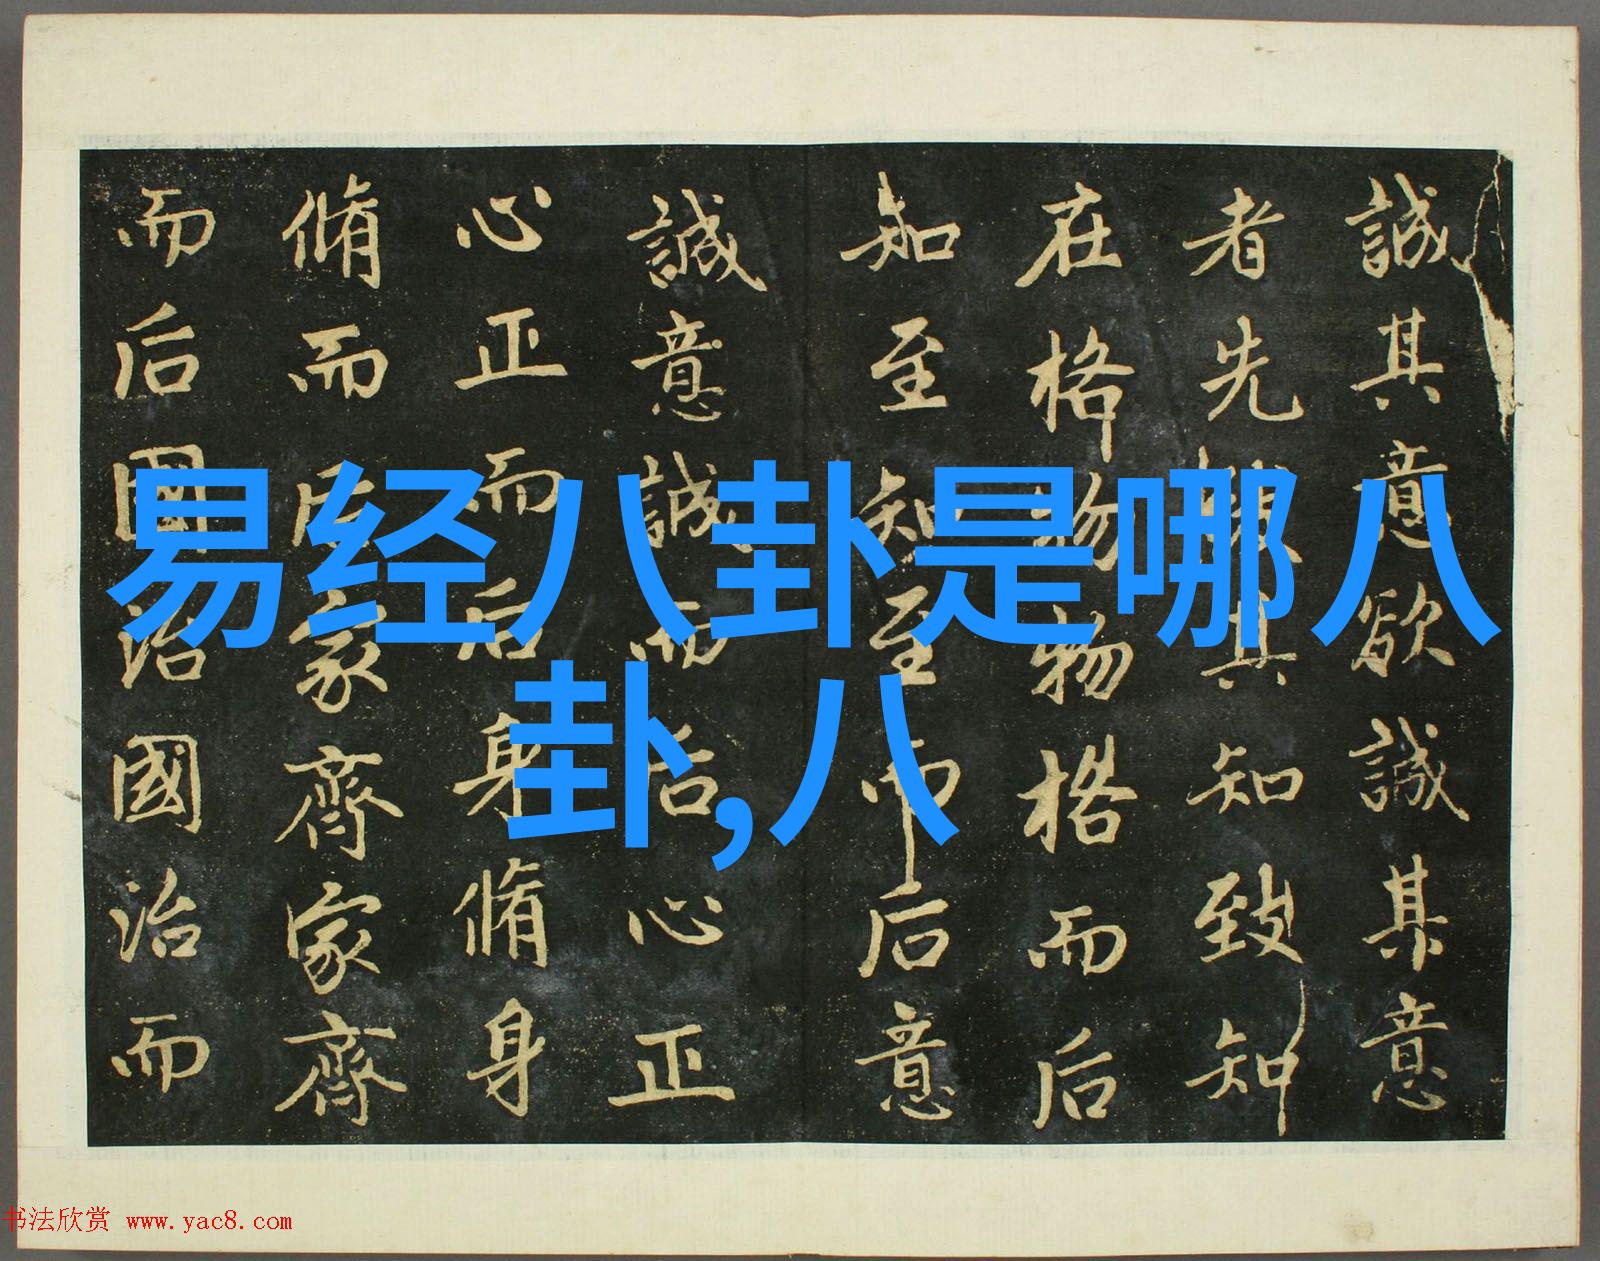 誠其意欲誠其意
者先致其知致知
在格物物格而后
知至知至而后意
誠意誠而后心正
心正而后身脩身
脩而后家齊家齊
而后國治國治而
易经八卦是哪八
卦,八
书法欣赏 www.yac8.com